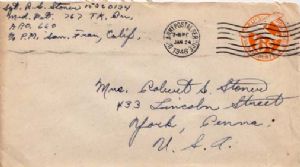 Sgt. R. S. Stoner 15020134
Med. Det. 767 TK. Bn.
A.P.O. 660
% P.M. San. Fran, Calif.
U.S. ARMY POSTAL SERVICE
JAN 24
1946
Mrs. Robert S. Stoner
433 Lincoln Street
York, Penna.
U. S. A.